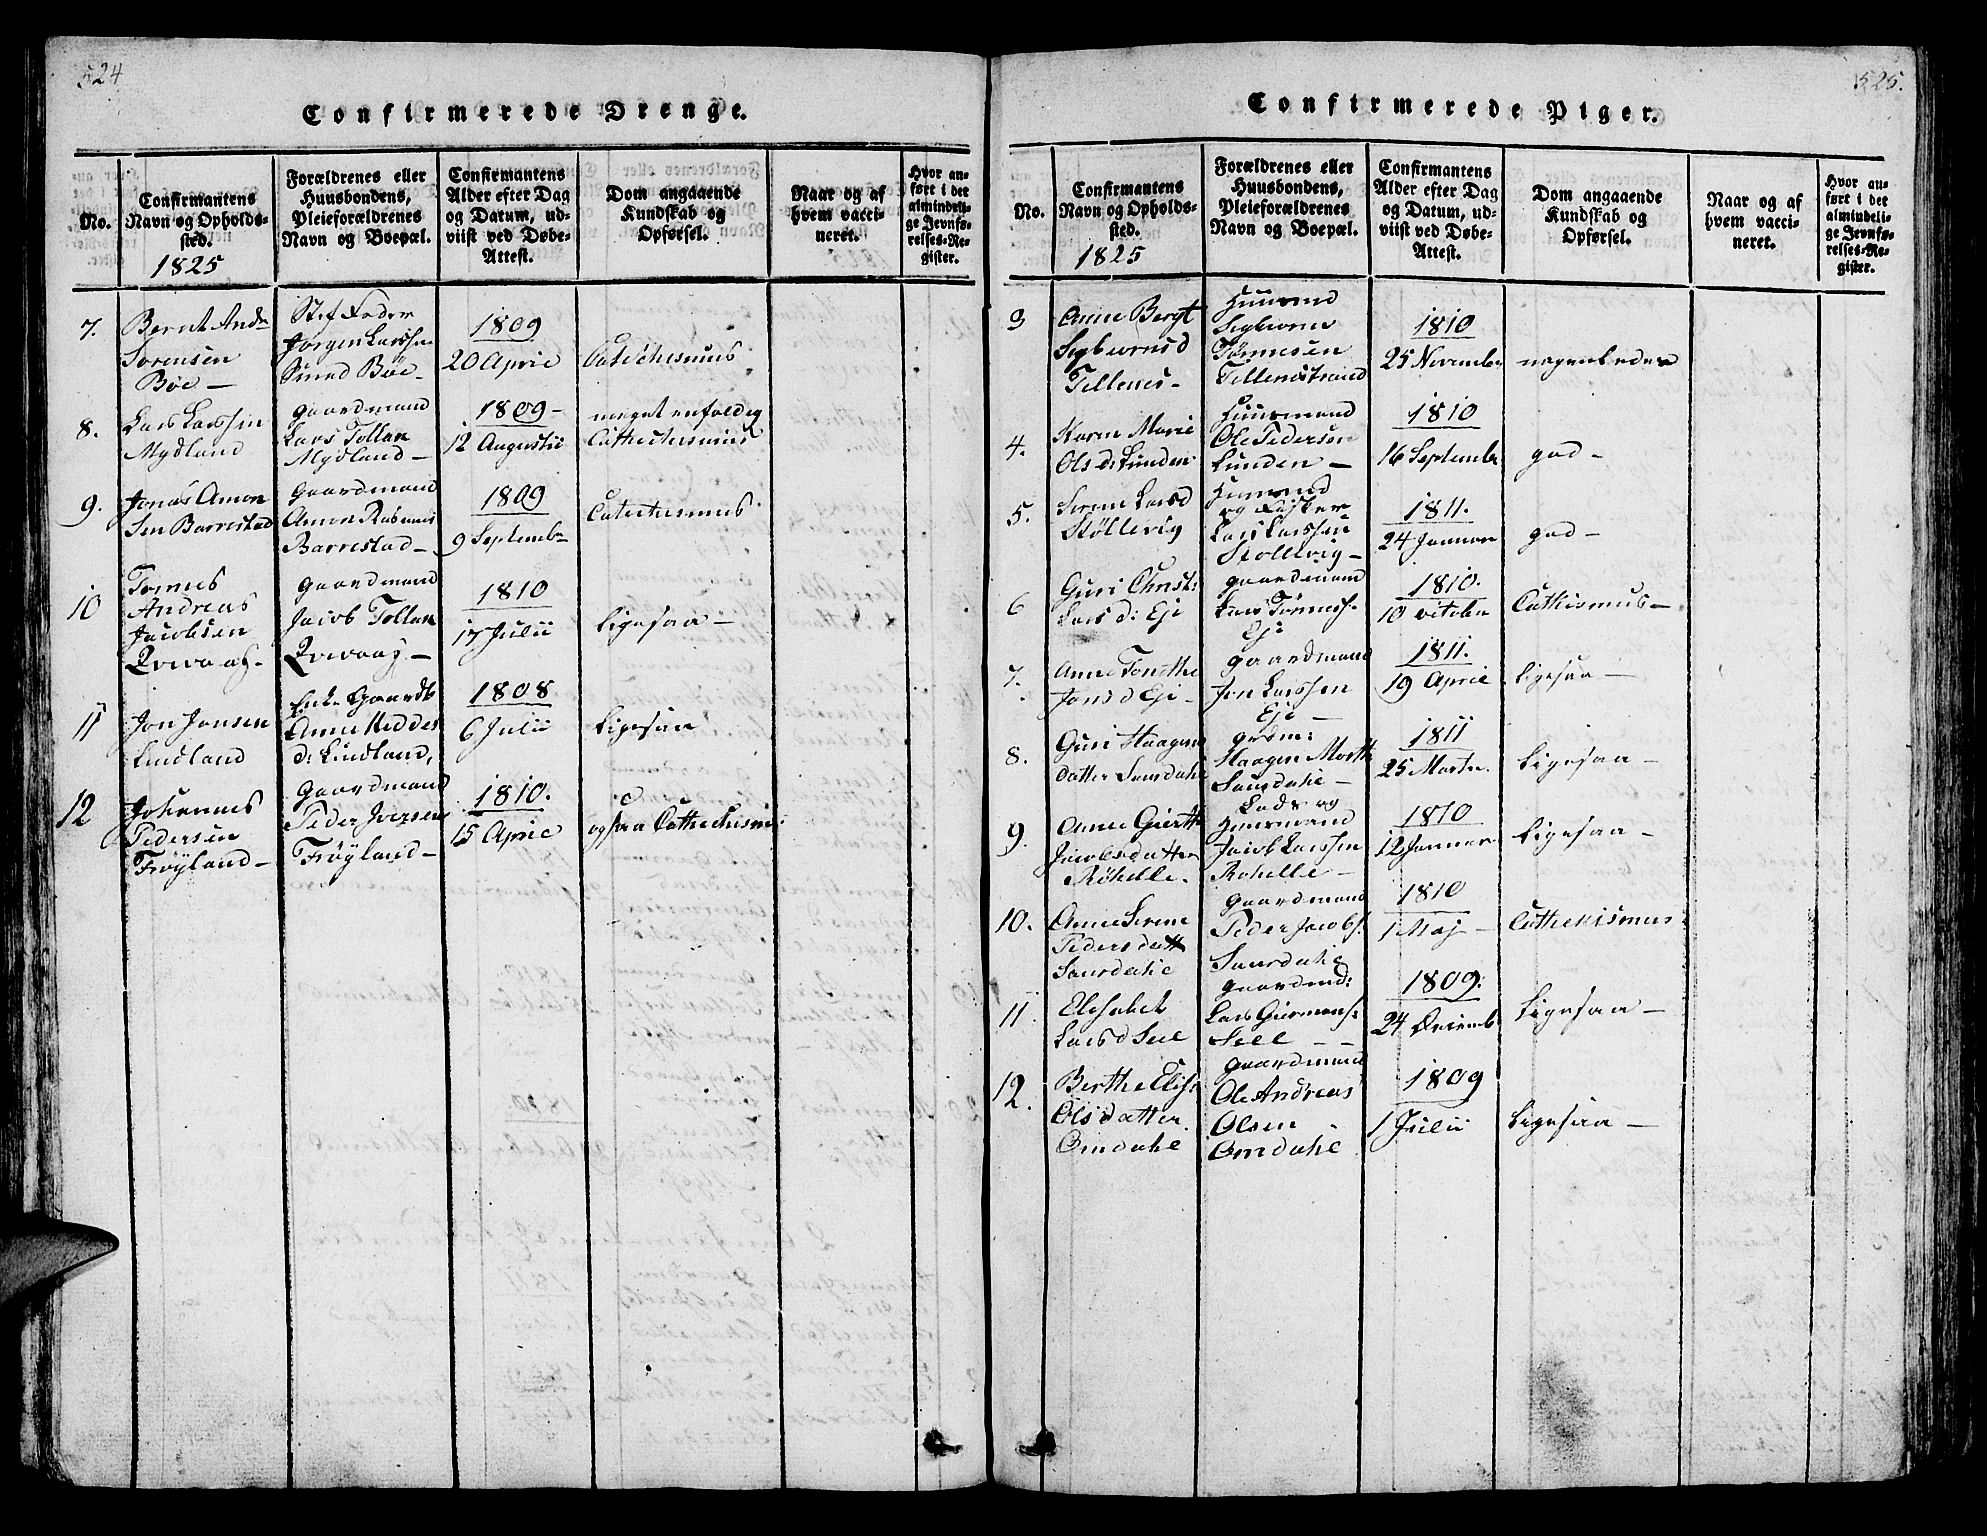 524
Confirmerede Drenge.
No.
Confirmantens
Navn og Opholds-
sted.
1825
Forældrenes eller
Huusbondens,
Pleieforældrenes
Navn og Boepæl.
Confirmantens
Alder efter Dag
og Datum, ud-
viist ved Døbe-
Attest.
Dom angaaende
Kundskab og
Opførsel.
Naar og af
hvem vacci-
neret.
Hvor an-
ført i det
almindeli-
ge Jevnfø-
relses-Re-
gister.
7.
Bernt Andr
Sorensen
Böe —
Stef Feder
Jörgen Larssen
Sund Böe —
1809
20 April
Catechismus
8.
Lars Larssen
Mydland
gaardmand
Lars Tollan
Mydland —
1809 —
12 Augustii
meget enfoldig
Cathechesmus
9.
Jonas Amon
Sen Barrestad
gaardmand
Amon Rasmus
Barrestad —
1809
9 Septemb
Catechesmus
10
Tonnes
Andreas
Jacobsen
gaardmand
Jacob Tollan
1810
17 Julii
Ligesaa —
11
Jon Jonsen
Lindland
Enke Gaardb
Anne
d: Lindland,
1808
6 Julii
Ligesaa
12
Johannes
Pedersen
Fröyland —
gaardmand
Peder Iversen
Fröyland —
1810.
15 April
ogsaa Cathechismu
525.
Confirmerede Piger.
No.
Confirmantens
Navn og Opholds-
sted.
1825
Forældrenes eller
Huusbondens,
Pleieforældrenes
Navn og Boepæl.
Confirmantens
Alder efter Dag
og Datum, ud-
viist ved Døbe-
Attest.
Dom angaaende
Kundskab og
Opførsel.
Naar og af
hvem vacci-
neret.
Hvor an-
ført i det
almindeli-
ge Jevnfø-
relses-Re-
gister.
3
Anne Bergt
Segbiornsd
Tellenes —
Huusmd
Segbiorn
Tønnesen
Tellenstrand
1810
25 November
nogenledes
4.
Karen Marie
Ols d: Lunden
Huusmand
Ole Pedersen
Lunden —
1810
16 Septembr
god —
5.
Siren Larsd
Støllevig
Huusmd
og Fisker
Lars Larssen
Stöllevig —
1811.
24 Januar
god —
6
Guri Christ:
Lars d: Eje
gaardmand
Lars Tønness.
Eje
1810.
10 October
Cathismus —
7.
Anne Tonethe
Jons d Eje —
gaardmand
Jon Larssen
Eje —
1811.
19 April
Ligesaa —
8.
Guri Haagens
datter Sausdahl
grdm:
Haagen Morth
Sausdahl —
1811
25 Marts.
Ligesaa —
9.
Anne Gurth
Jacobsdatter
Røkelle.
Lods og
Huusmand
Jacob Larssen
Rokelle —
1810
12 Januar
Ligesaa —
10.
Anne Sirene
Pedersdatt
Sausdahl
gaardmand
Peder Jacobs.
Sausdahl
1810
1 Maj —
Cathekismus
11.
Elesabet
Lars d Sele
gaardmd:
Lars
Sele — —
1809.
24 Decemb
Ligesaa —
12.
Berthe Elis:
Olsdatter
Omdahl
gaardmand
Ole Andreas
Olsen
Omdahl
1809
1 Julii
Ligesaa —